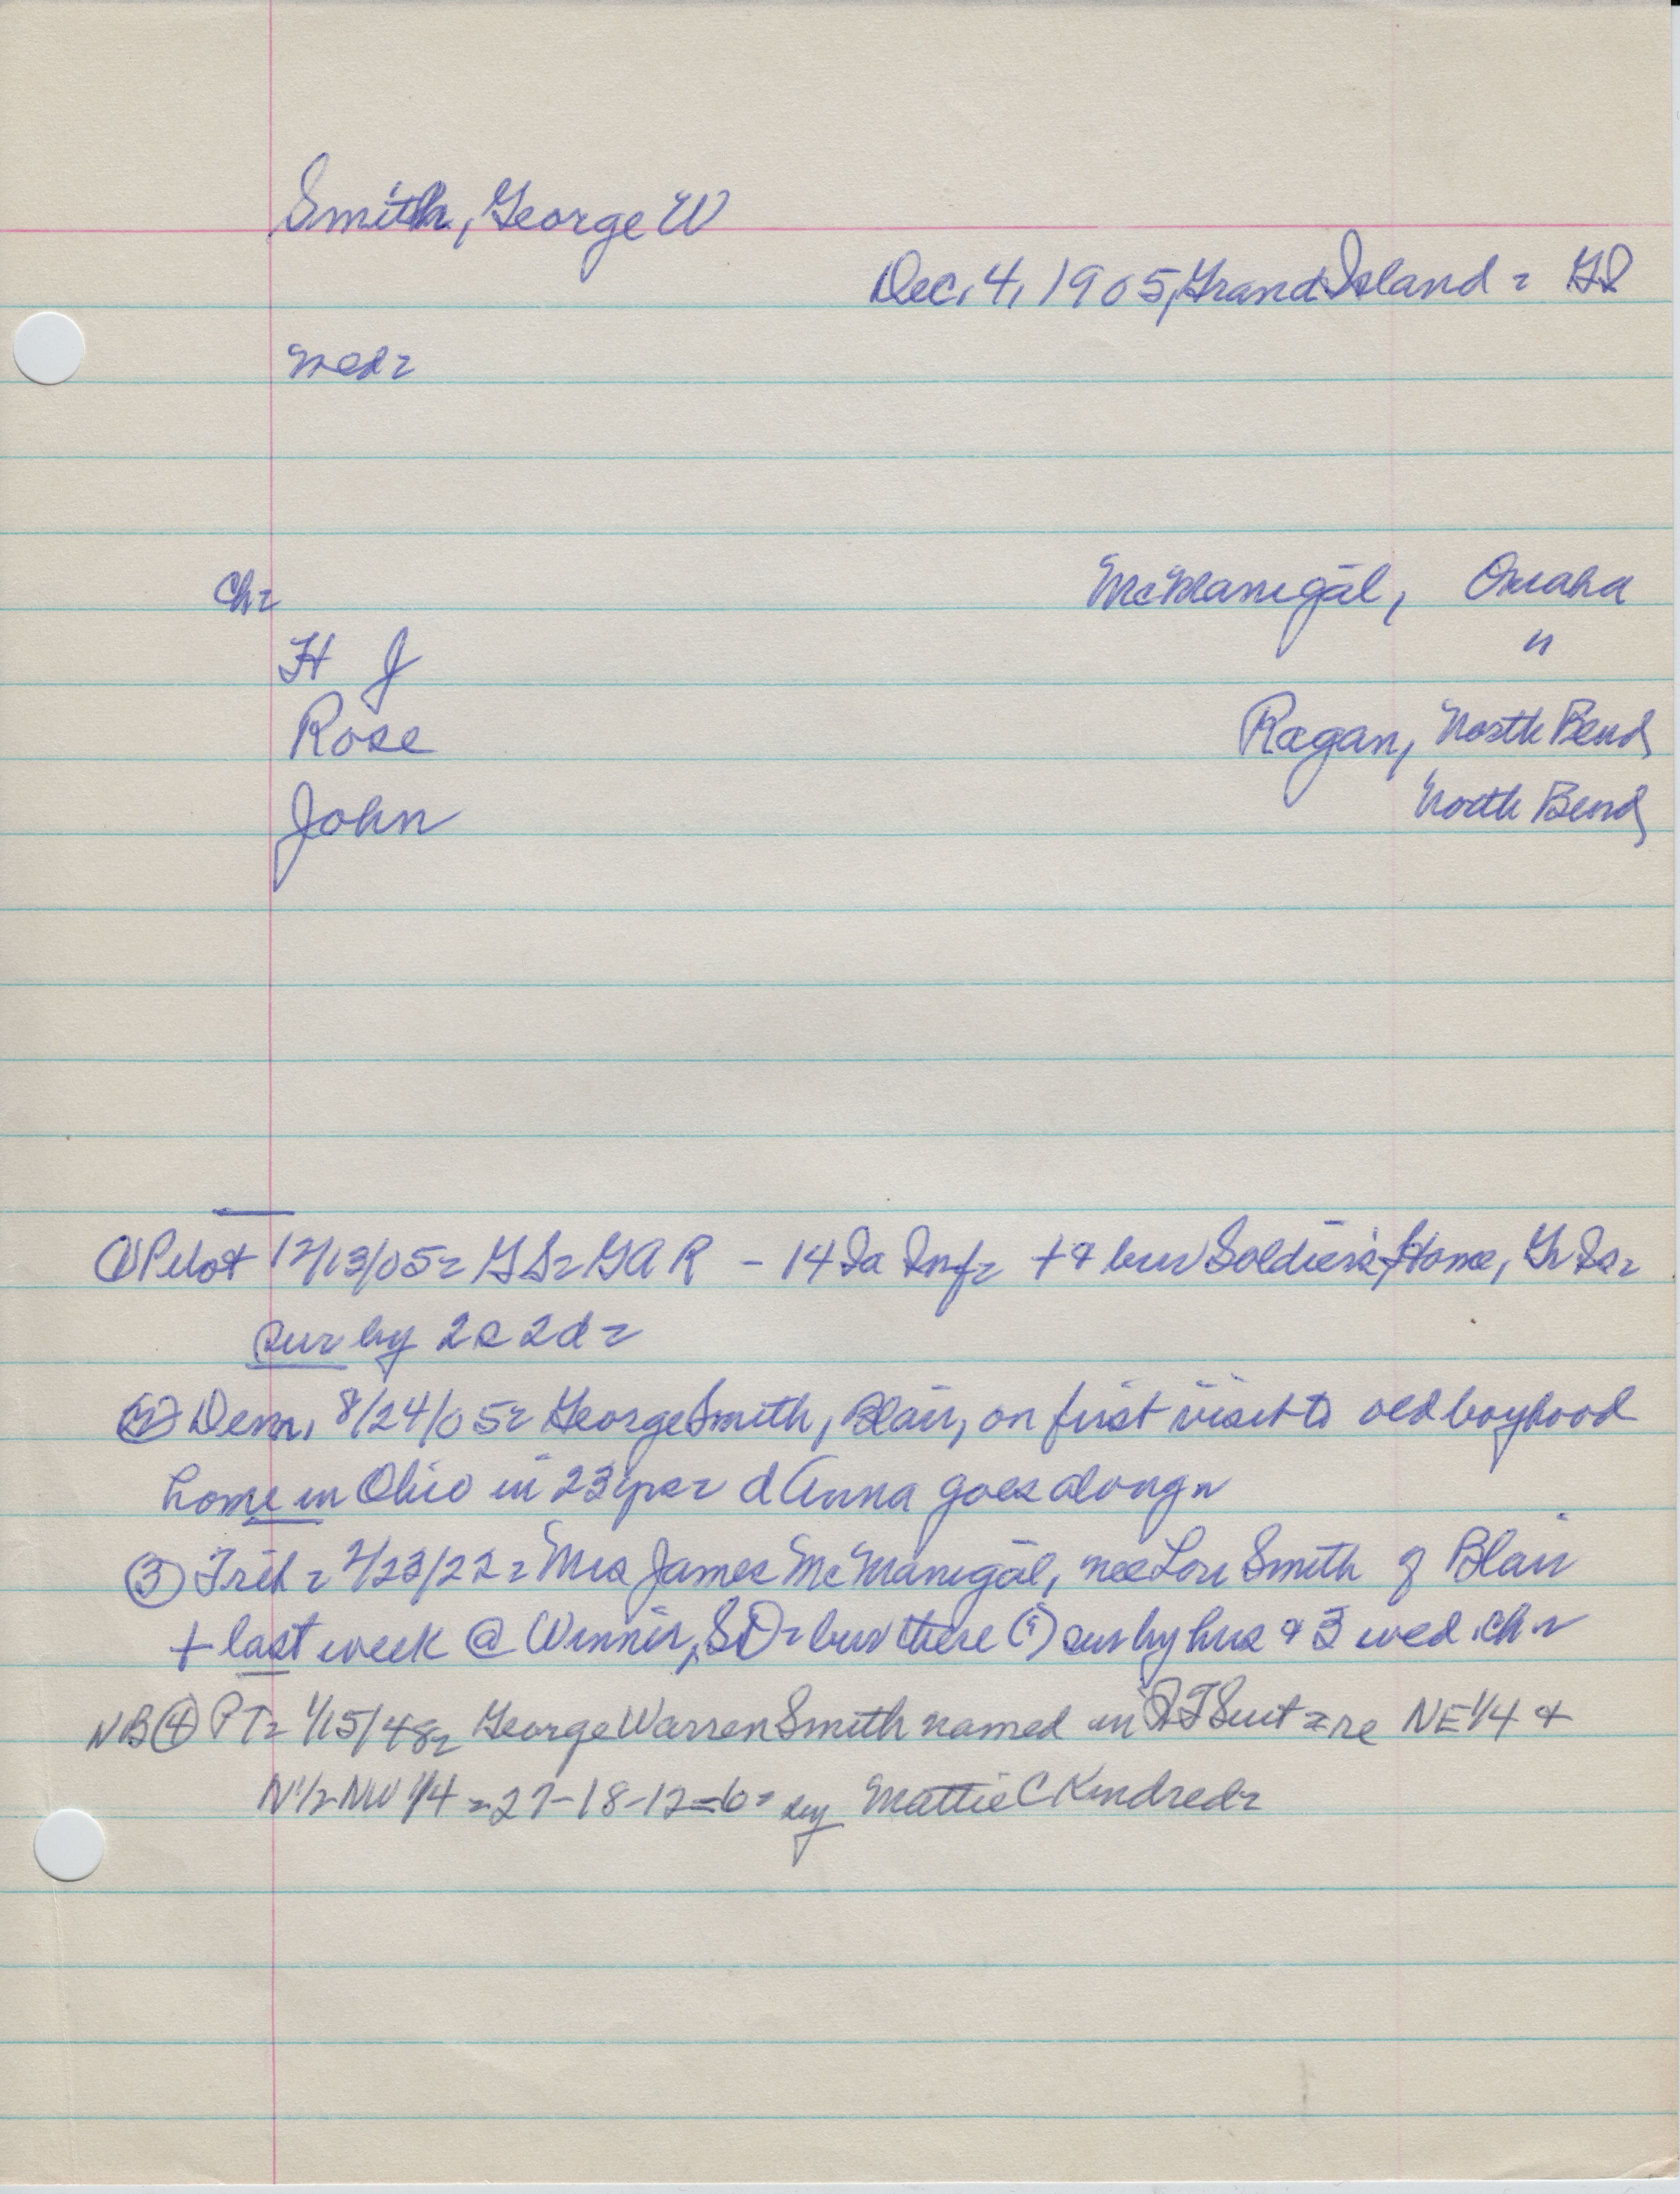 Smith, George W
Dec. 4, 1905, Grand Island = GS
wed=
Ch= McManigal, Omaha
H J "
Rose Ragan, North Bend
John North Bend
① Pilot 12/13/05= GS= GAR - 14 Ia Inf= + & bur Soldiers Home, Gr Is=
sur by 2s 2d=
② Dem, 8/24/05= George Smith, Blair, on first visit to old boyhood
home in Ohio in 23 yrs= d Anna goes along=
③ Trib= 2/23/22= Mrs James McManigal, nee Lou Smith of Blair
+ last week @ Winner, SD= bur there (?) sur by hus & 3 wed ch=
NB ④ PT= 1/15/48= George Warren Smith named in QT Suit = re NE 1/4 &
N 1/2 NW 1/4 = 27-18-12= by Mattie C Kindred=